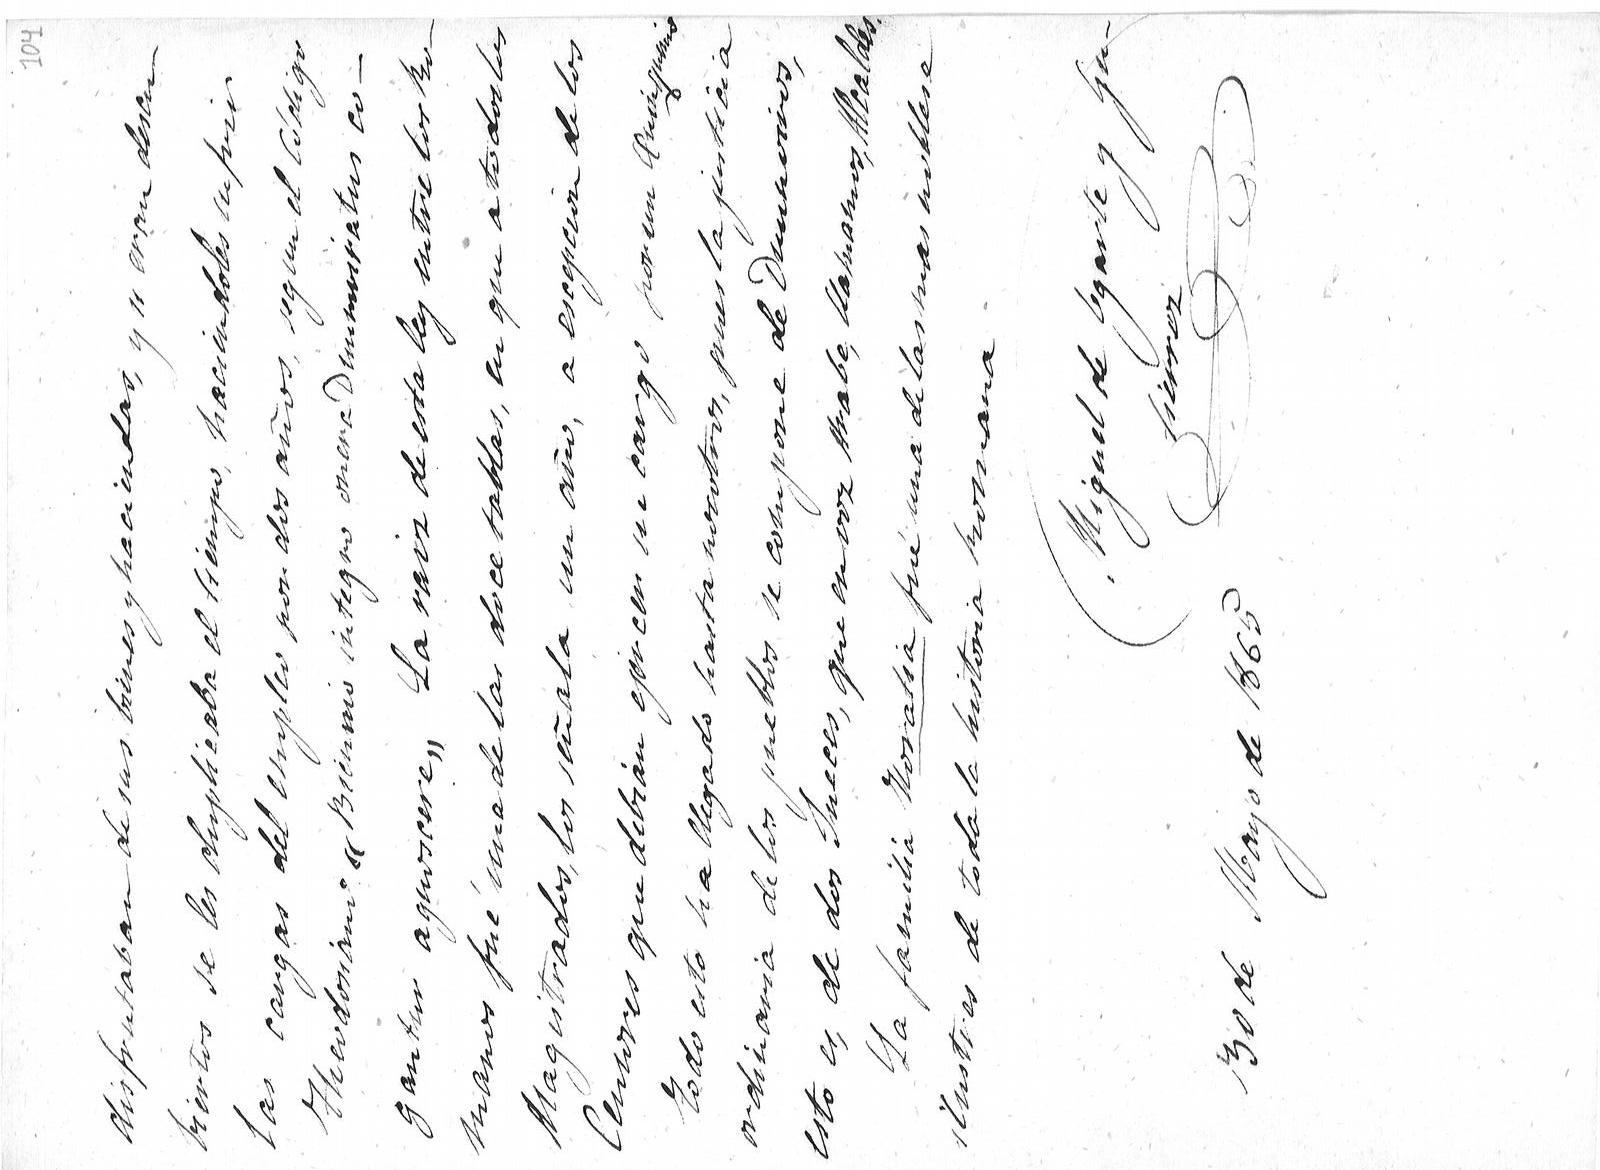 104
disfrutaban de sus bienes y haciendas, y si eran descu
biertos se les duplicaba el tiempo, haciendoles sufrir
las cargas del empleo por dos años, segun el Código
Theodosiano "Biennio integro onera Duumviratus co-
gantur agnoscere" La raiz de esta ley entre los Ro-
manos fué una de las doce tablas, en que a todos los
Magistrados, los señala un año, a escepcion de los
Censores que debian ejercer su cargo por un Quinquenio
Todo esto ha llegado hasta nosotros, pues la justicia
ordinaria de los pueblos se compone de Duumviros,
esto es, de dos Jueces, que en voz arabe, llamamos, Alcaldes.
La familia Horatia fué una de las mas nobles e
ilustres de toda la historia Romana
Miguel de Ygarte y Gu-
tierrez
30 de Mayo de 1865